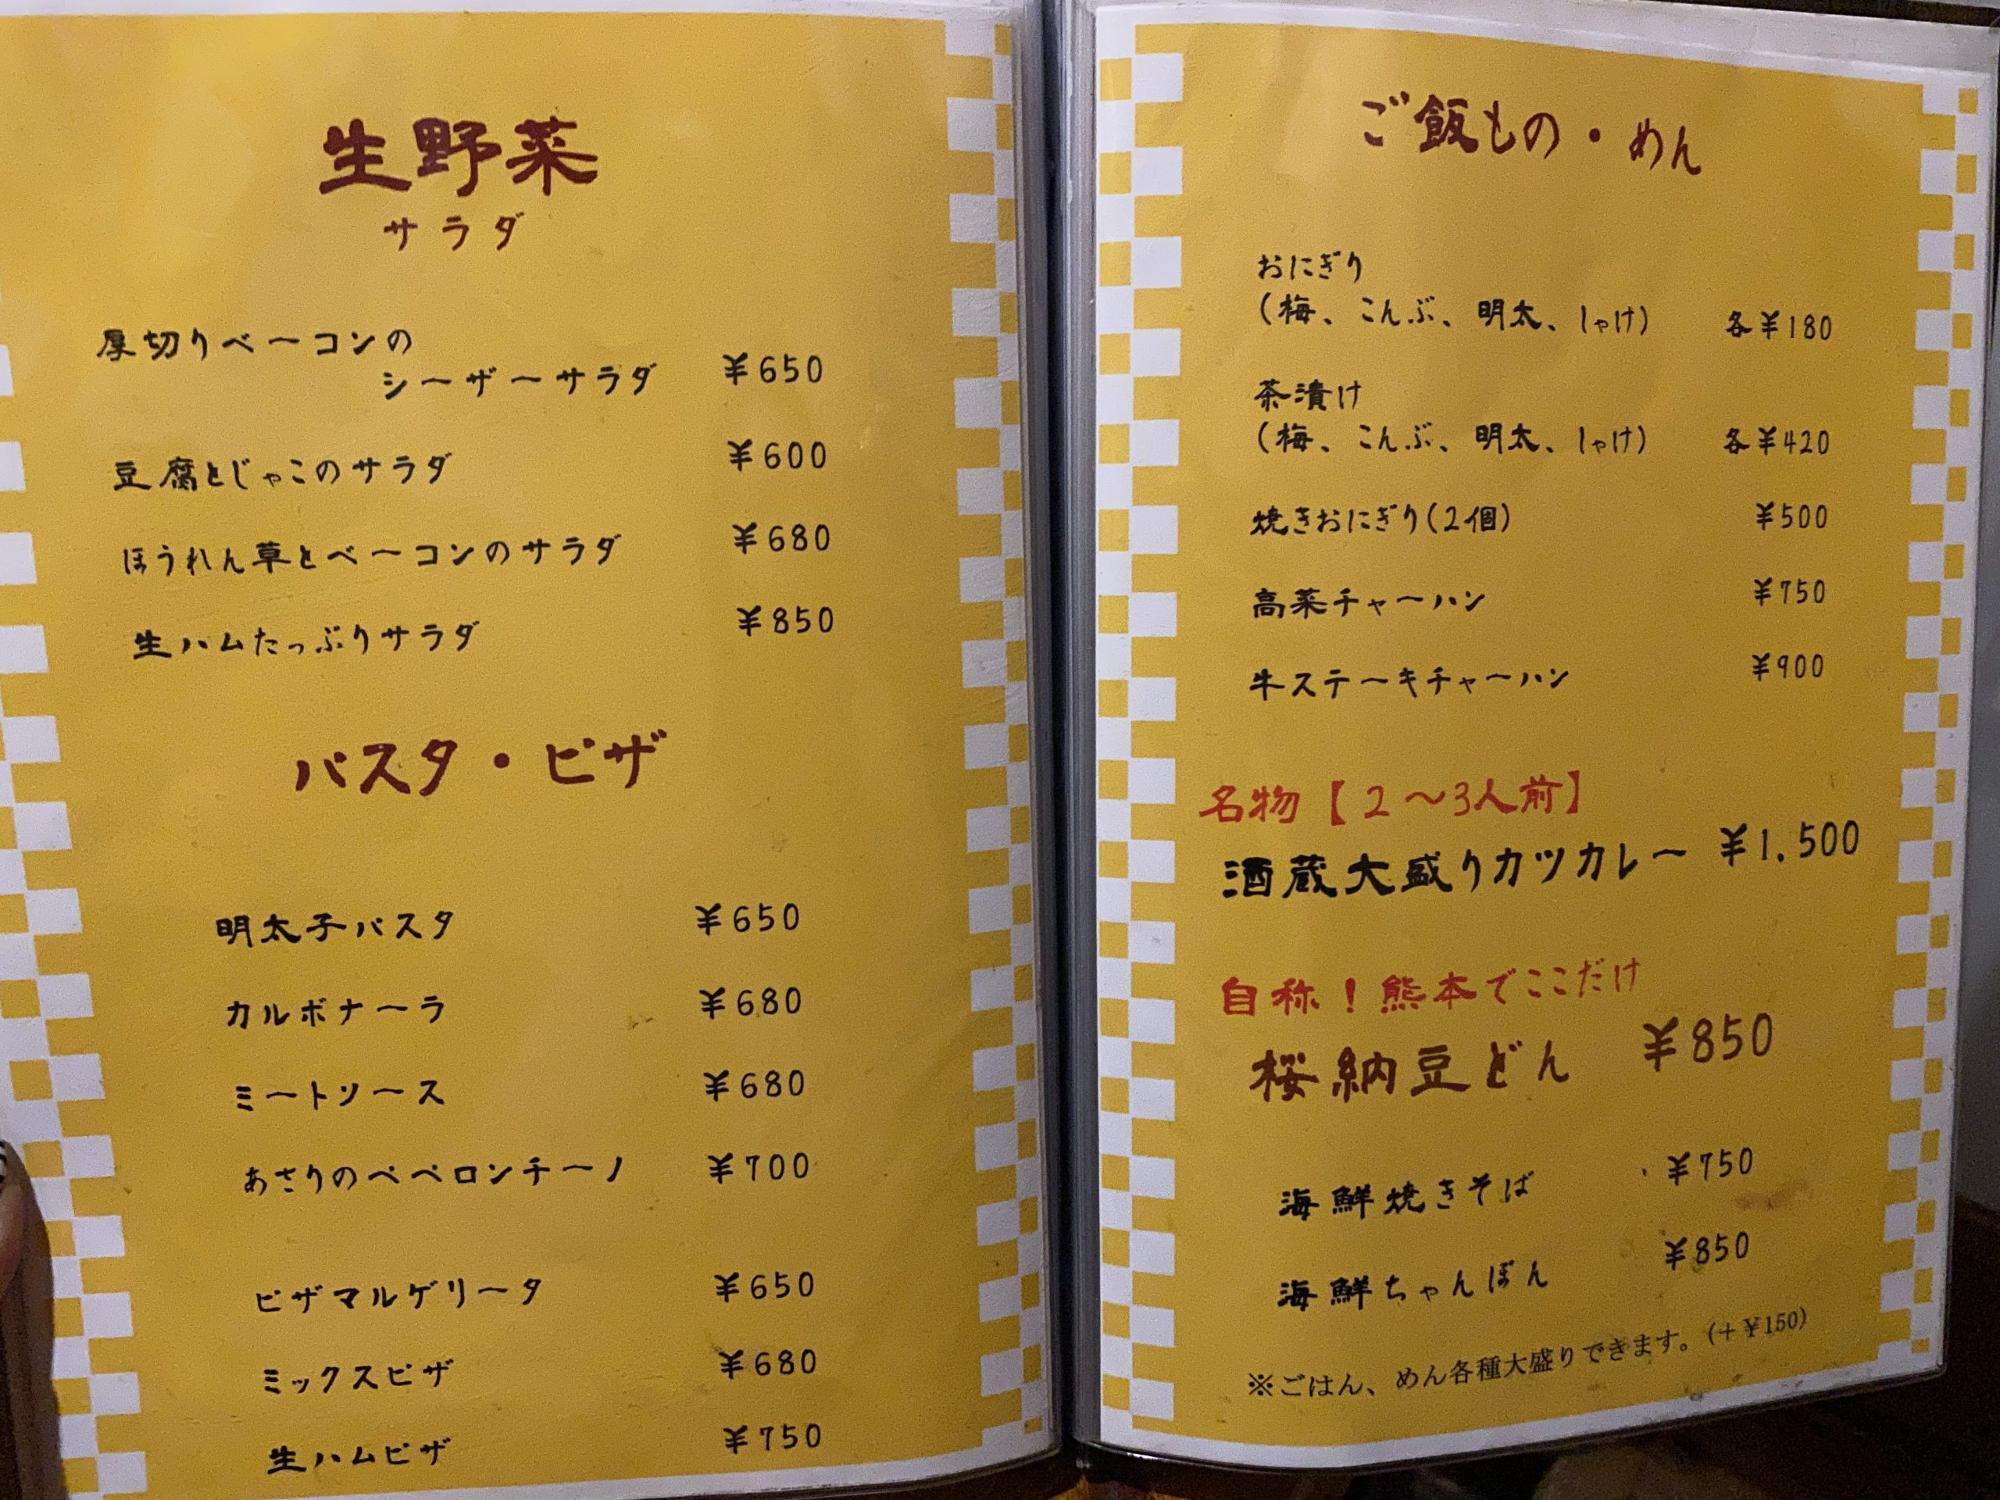 生野菜
サラダ
厚切りベーコンの
シーザーサラダ ¥650
豆腐とじゃこのサラダ ¥600
ほうれん草とベーコンのサラダ ¥680
生ハムたっぷりサラダ ¥850
パスタ・ピザ
明太子パスタ ¥650
カルボナーラ ¥680
ミートソース ¥680
あさりのペペロンチーノ ¥700
ピザマルゲリータ ¥650
ミックスピザ ¥680
生ハムピザ ¥750
ご飯もの・めん
おにぎり
(梅、こんぶ、明太、しゃけ) 各¥180
茶漬け
(梅、こんぶ、明太、しゃけ) 各¥420
焼きおにぎり(2個) ¥500
高菜チャーハン ¥750
牛ステーキチャーハン ¥900
名物【2〜3人前】
酒蔵大盛りカツカレー ¥1.500
自称！熊本でここだけ
桜納豆どん ¥850
海鮮焼きそば ¥750
海鮮ちゃんぽん ¥850
※ごはん、めん各種大盛りできます。(+¥150)